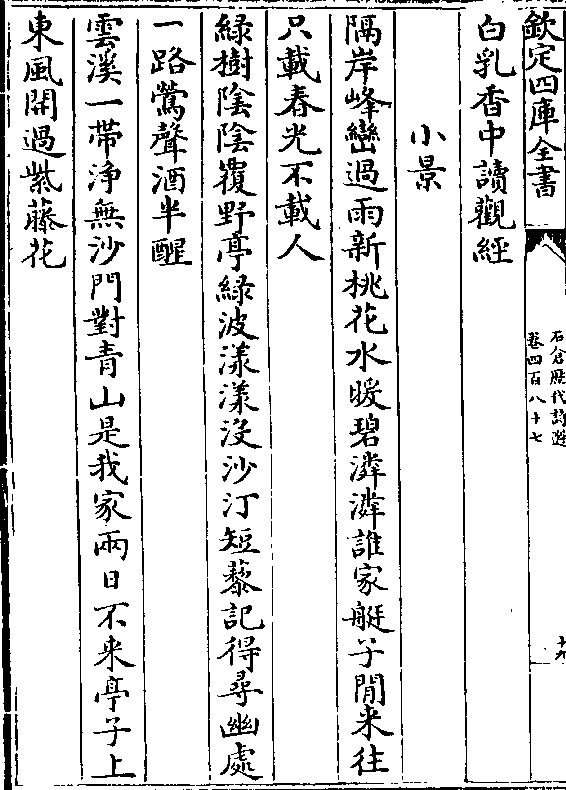 欽定四庫全書
石倉歷代詩選
卷四百八十七
十九
白乳香中讀觀經
小景
隔岸峰巒過雨新桃花水暖碧潾潾誰家艇子閒来往
只載春光不載人
綠樹陰陰覆野亭綠波漾漾沒沙汀短藜記得尋幽處
一路鶯聲酒半醒
雲溪一帶浄無沙門對青山是我家兩日不来亭子上
東風開過紫藤花